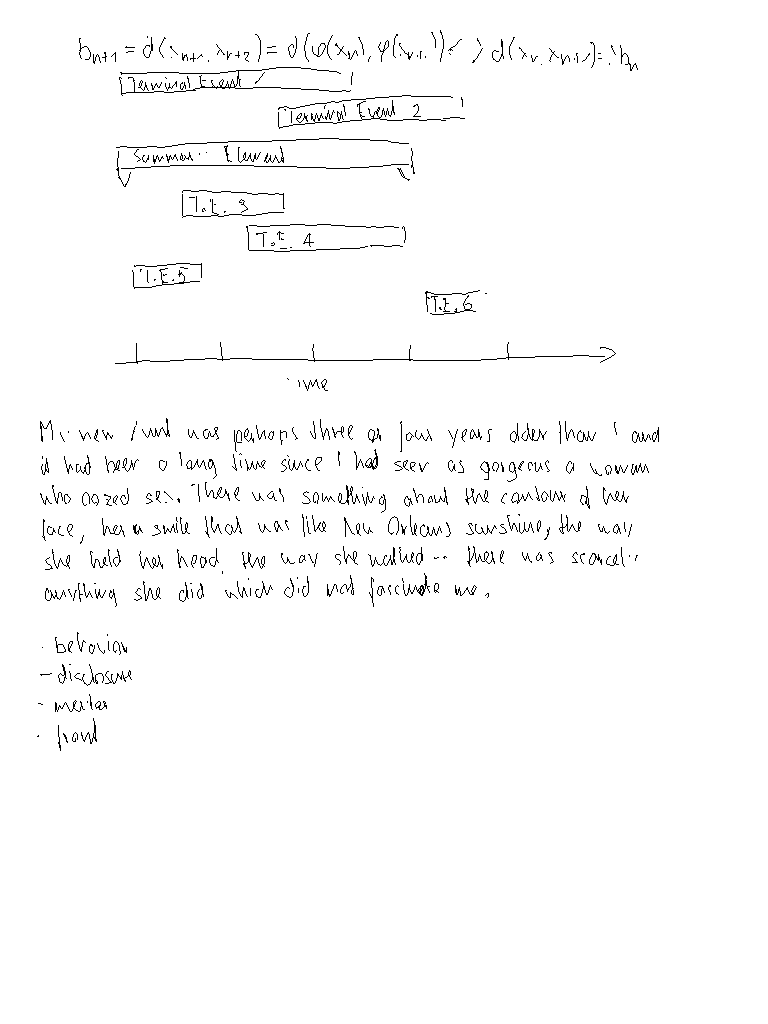 b_{n+1} = d(x_{n+1}, x_{n+2}) = d(φ(x_n), φ(x_{n+1})) < d(x_n, x_{n+1}) = b_n
Terminal Event
Terminal Event 2
Element
T.E. 3
T.E. 4
T.E.5
T.E. 6
Time
My new was perhaps three or four years older than I and
it had been a long time since I had seen as gorgeous a woman
who oozed sex. There was something about the contour of her
face, her smile that was like New Orleans sunshine, the way
she held her head, the way she walked -- there was scarcely
anything she did which did not fascinate me.
- behavior
- disclosure
- front